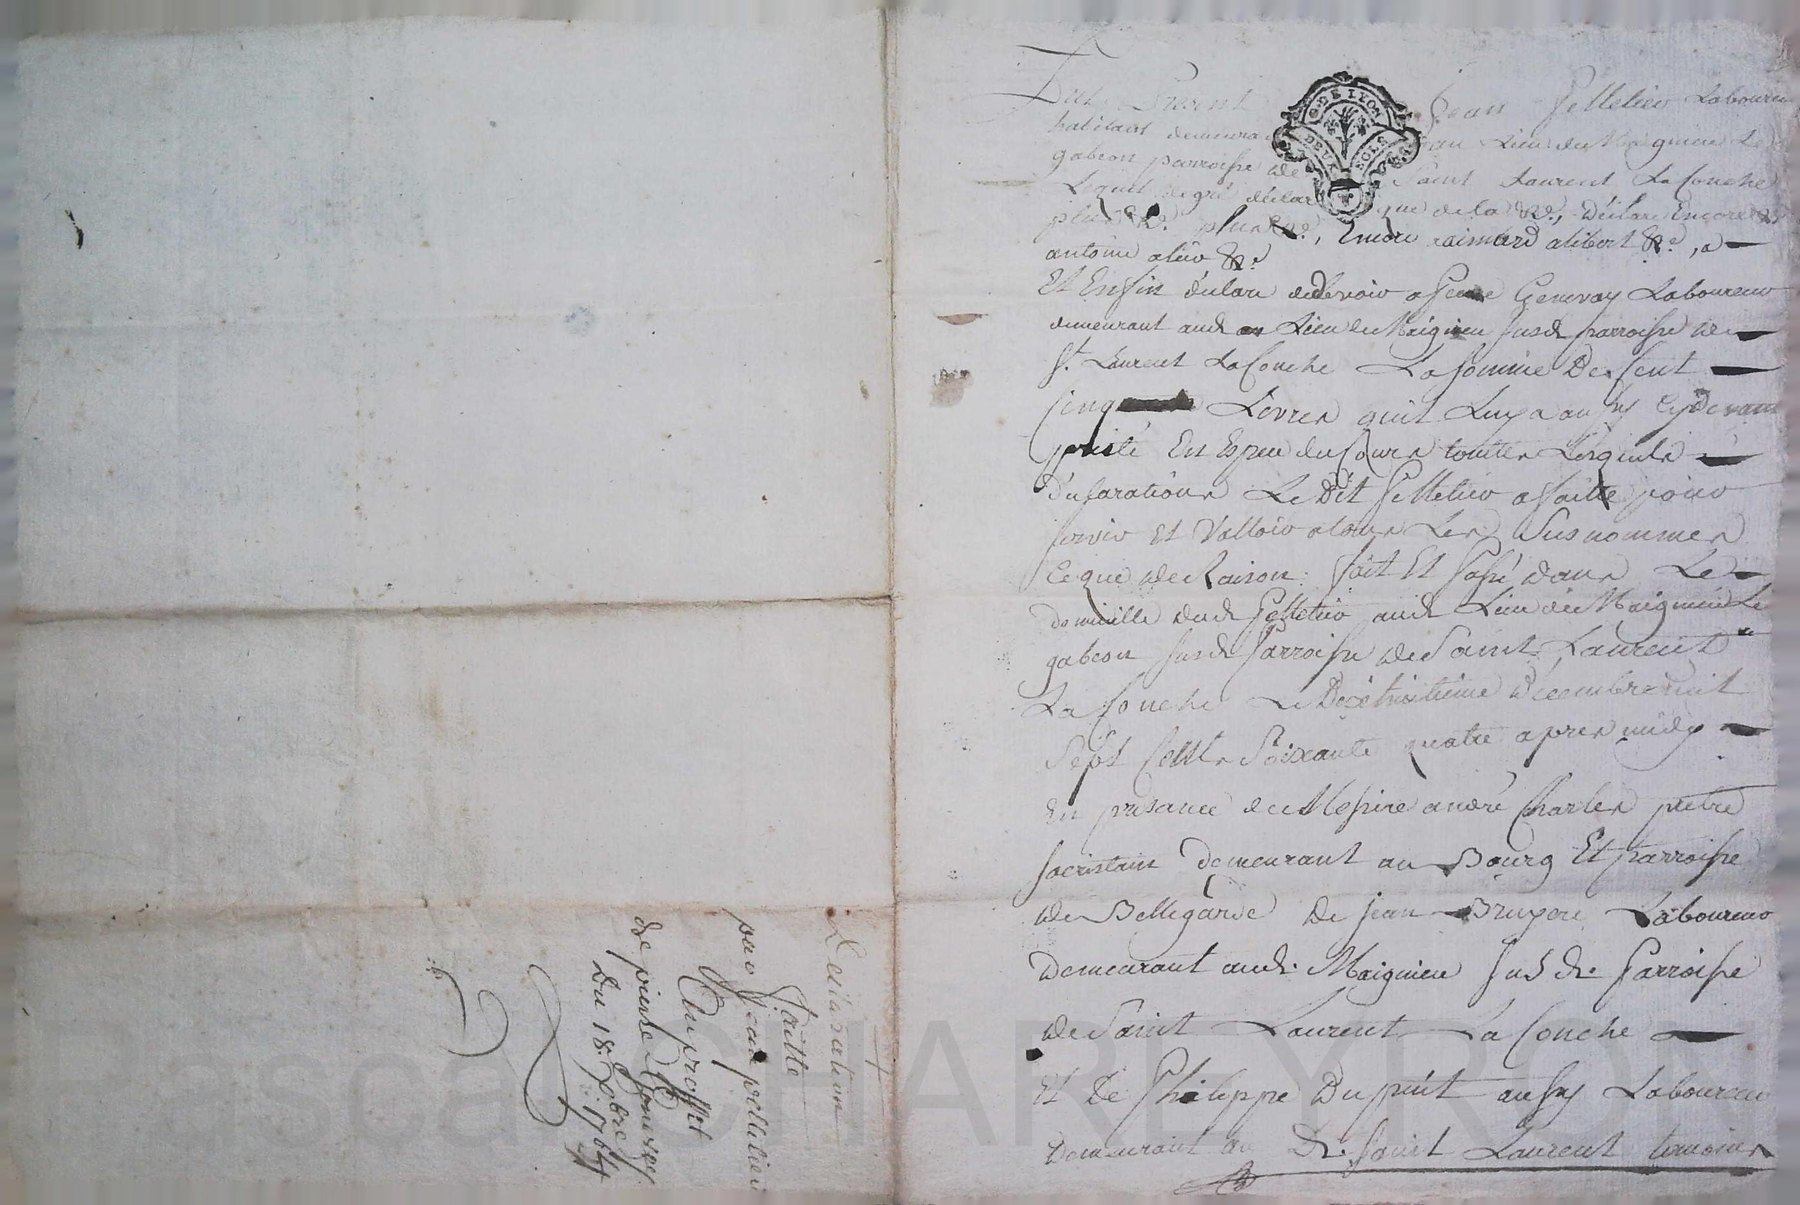 Jean Pelletier Laboureur
habitant demeurant au Lieu du Maignieu Le
gabeon parroisse de Saint Laurent La Conche
Lequel de gré déclare que de la &c., Déclare Encore
plus &c. plus &c., Encore alibert &c., a
antoine &c.
Et Enfin déclare devoir a Genevay Laboureur
demeurant aud Lieu de Maignieu susd parroisse de
St. Laurent La Conche La somme De Cent
Cinq Livres quil Luy a aussy cydevant
presté En Espece du Cours toutes Lesquelles
déclarations Le Dit Pelletier a faitte pour
servir Et Valloir a tous Les Susnommes
Ce que de Raison. fait Et Passé dans Le
domicille dud Pelletier aud Lieu de Maignieu Le
gabeon susd Parroisse de Saint Laurent
La Conche Le Dixhuitieme Décembre mil
Sept Cent Soixante quatre apres midy
En presance de Messire andré Charles prêtre
sacristain Demeurant au Bourg Et Parroisse
de Bellegarde De Jean Bruyere Laboureur
Demeurant aud. Maignieu Susd. Parroisse
de Saint Laurent La Conche
Et De Philippe Dupuit aussy Laboureur
Demeurant au d. Saint Laurent temoins
G. DE LYON
DEUX SOLS
Déclaration
faitte
par Jean pelletier
Au proffit
de pierre
Du 18. Xbre 1764
Pascal CHAREYRON